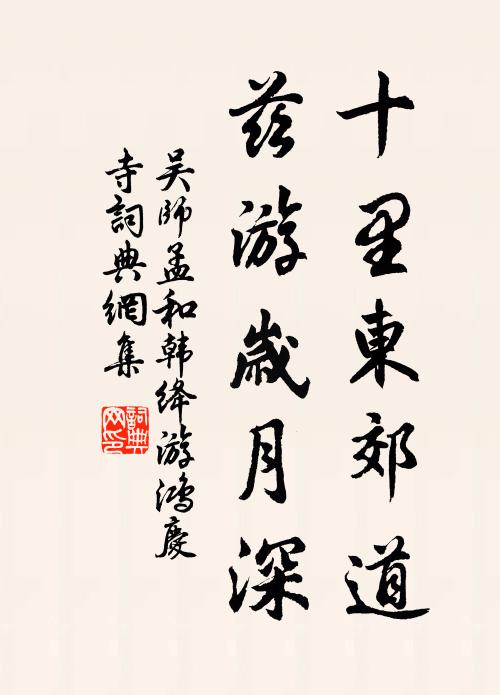 十里東郊道
茲游歲月深
吴師孟和韩绛游鴻慶
寺詞典網集
詞典
网印